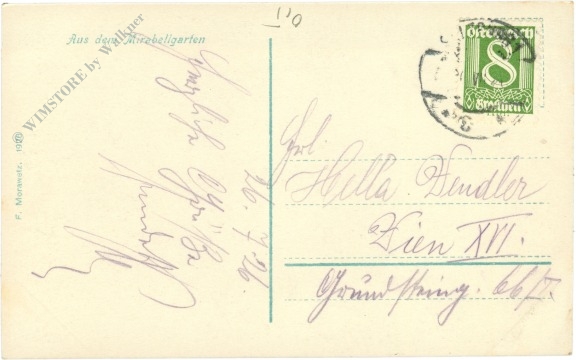 Aus dem Mirabellgarten
WIMSTORE by Walkner
F. Morawetz. 1926
Herzliche
Grüße
26. 7. 26.
Österreich
8
Groschen
Frl.
Hella Dendler
Wien XVI.
Grundsteing. 66/II.